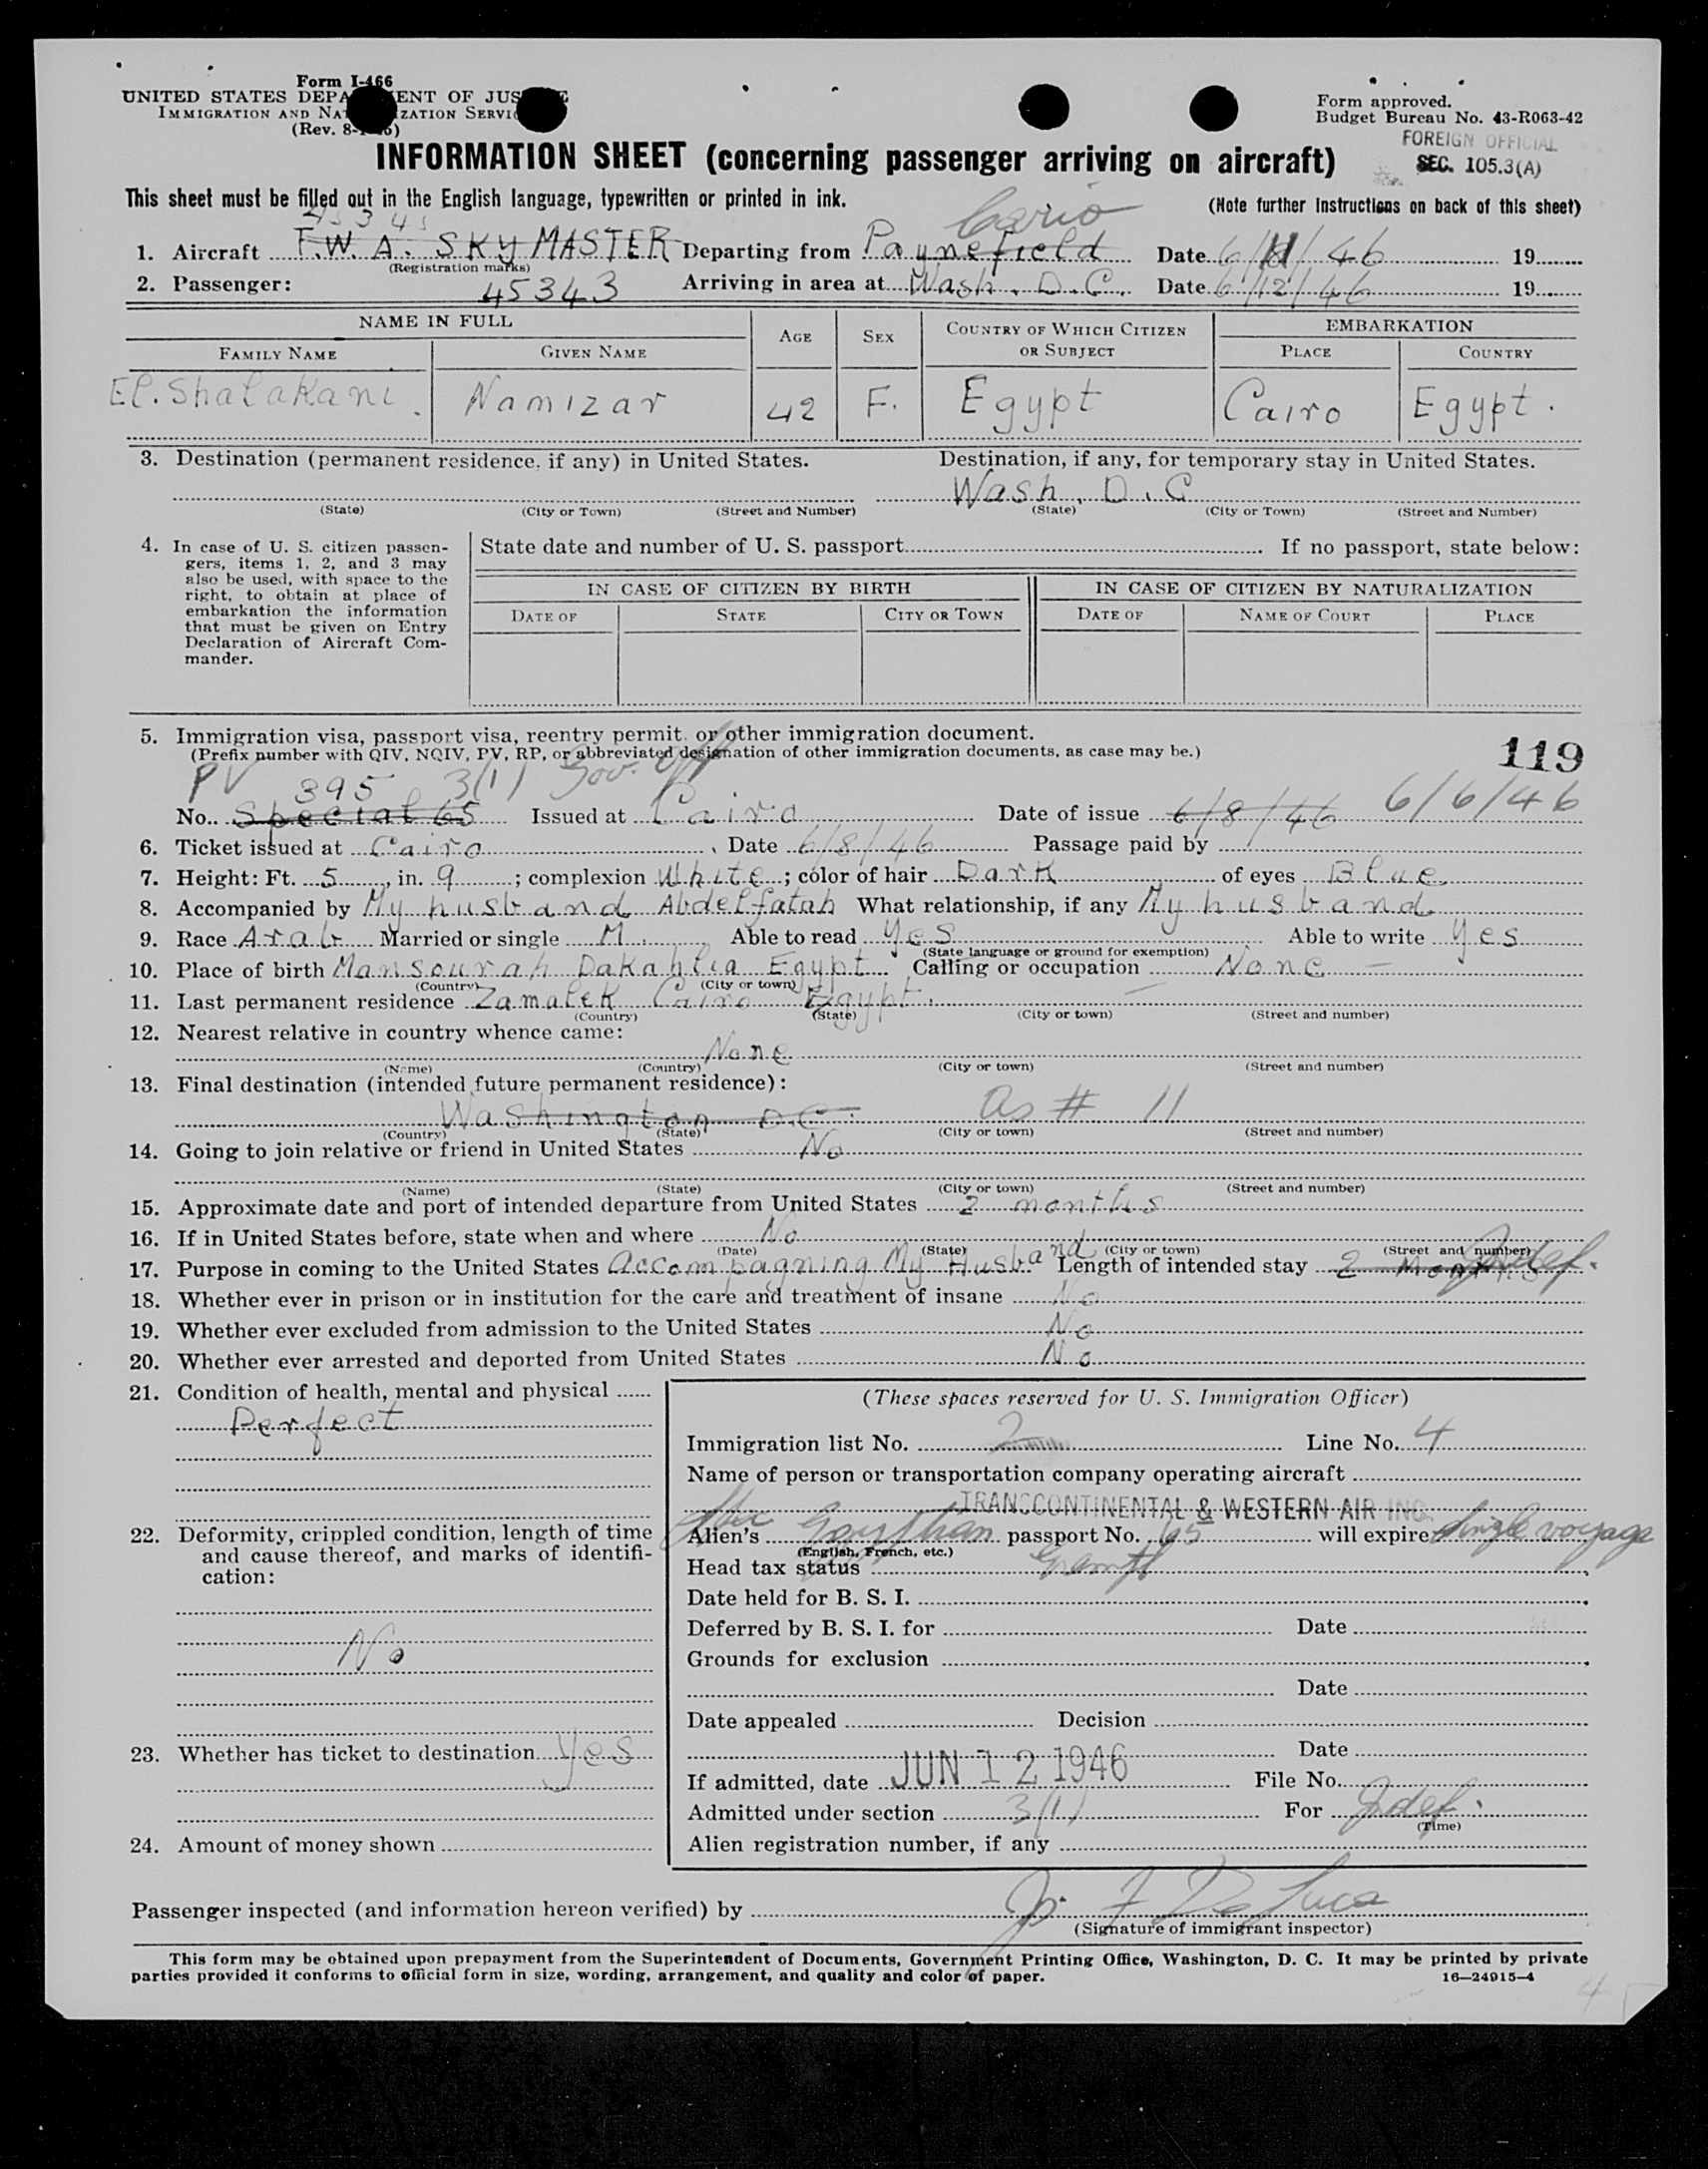 Form I-466
UNITED STATES DEPA ENT OF JUS E
IMMIGRATION AND NAT IZATION SERVIC
(Rev. 8- )
Form approved.
Budget Bureau No. 43-R063-42
FOREIGN OFFICIAL
SEC. 105.3(A)
INFORMATION SHEET (concerning passenger arriving on aircraft)
This sheet must be filled out in the English language, typewritten or printed in ink. (Note further instructions on back of this sheet)
45343 Cario
1. Aircraft T.W.A. SKYMASTER Departing from Paynefield Date 6/11/46 19
(Registration marks)
2. Passenger: 45343 Arriving in area at Wash. D.C. Date 6/12/46 19
NAME IN FULL AGE SEX COUNTRY OF WHICH CITIZEN OR SUBJECT EMBARKATION
FAMILY NAME GIVEN NAME PLACE COUNTRY
El.Shalakani. Namizar 42 F. Egypt Cairo Egypt.
3. Destination (permanent residence, if any) in United States. Destination, if any, for temporary stay in United States.
Wash. D.C
(State) (City or Town) (Street and Number) (State) (City or Town) (Street and Number)
4. In case of U. S. citizen passengers, items 1, 2, and 3 may also be used, with space to the right, to obtain at place of embarkation the information that must be given on Entry Declaration of Aircraft Commander.
State date and number of U. S. passport If no passport, state below:
IN CASE OF CITIZEN BY BIRTH IN CASE OF CITIZEN BY NATURALIZATION
DATE OF STATE CITY OR TOWN DATE OF NAME OF COURT PLACE
5. Immigration visa, passport visa, reentry permit, or other immigration document.
(Prefix number with QIV, NQIV, PV, RP, or abbreviated designation of other immigration documents, as case may be.)
119
PV 395 3(1) Gov. Off
No. Special 65 Issued at Cairo Date of issue 6/8/46 6/6/46
6. Ticket issued at Cairo, Date 6/8/46 Passage paid by
7. Height: Ft. 5, in. 9; complexion White; color of hair Dark of eyes Blue
8. Accompanied by My husband Abdelfatah What relationship, if any My husband
9. Race Arab Married or single M. Able to read Yes Able to write Yes
(State language or ground for exemption)
10. Place of birth Mansourah Dakahlia Egypt. Calling or occupation None -
(Country) (City or town)
11. Last permanent residence Zamalek Cairo Egypt. -
(Country) (State) (City or town) (Street and number)
12. Nearest relative in country whence came:
None
(Name) (Country) (City or town) (Street and number)
13. Final destination (intended future permanent residence):
Washington D.C. As # 11
(Country) (State) (City or town) (Street and number)
14. Going to join relative or friend in United States No
(Name) (State) (City or town) (Street and number)
15. Approximate date and port of intended departure from United States 2 months
16. If in United States before, state when and where No
(Date) (State) (City or town) (Street and number)
17. Purpose in coming to the United States Accompagning My Husband Length of intended stay 2 Months Indef.
18. Whether ever in prison or in institution for the care and treatment of insane No
19. Whether ever excluded from admission to the United States No
20. Whether ever arrested and deported from United States No
21. Condition of health, mental and physical
Perfect
22. Deformity, crippled condition, length of time and cause thereof, and marks of identification:
No
23. Whether has ticket to destination Yes
24. Amount of money shown
(These spaces reserved for U. S. Immigration Officer)
Immigration list No. 2 Line No. 4
Name of person or transportation company operating aircraft
TRANSCONTINENTAL & WESTERN AIR INC.
Alien's Egyptian passport No. 65 will expire single voyage
(English, French, etc.)
Head tax status Exempt
Date held for B. S. I.
Deferred by B. S. I. for Date
Grounds for exclusion
Date
Date appealed Decision
Date
If admitted, date JUN 12 1946 File No.
Admitted under section 3(1) For Indef.
(Time)
Alien registration number, if any
Passenger inspected (and information hereon verified) by F De Luca
(Signature of immigrant inspector)
This form may be obtained upon prepayment from the Superintendent of Documents, Government Printing Office, Washington, D. C. It may be printed by private
parties provided it conforms to official form in size, wording, arrangement, and quality and color of paper. 16—24915-4